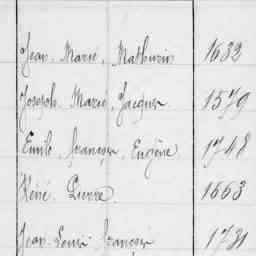 Jean. Marie, Mathurin 1632
Joseph. Marie, Jacques 1579
Emile. François. Eugène. 1748
Réné. Pierre. 1663
Jean Louis François 1731